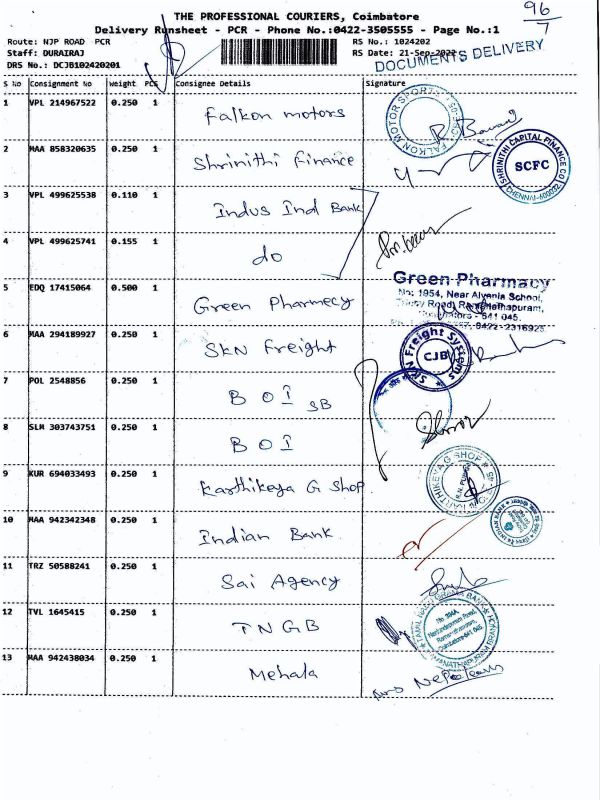 96
7
THE PROFESSIONAL COURIERS, Coimbatore
Delivery Runsheet - PCR - Phone No.:0422-3505555 - Page No.:1
Route: NJP ROAD PCR
RS No.: 1024202
Staff: DURAIRAJ
RS Date: 21-Sep-2022
DRS No.: DCJB102420201
DOCUMENTS DELIVERY
S No Consignment No Weight PCS Consignee Details Signature
1 VPL 214967522 0.250 1 Falkon motors
FALKON MOTOR SPORTS
2 MAA 858320635 0.250 1 Shrinithi Finance
SHRINITHI CAPITAL FINANCE CO
SCFC
CHENNAI-600032
3 VPL 499625538 0.110 1 Indus Ind Bank
4 VPL 499625741 0.155 1 do
5 EDQ 17415064 0.500 1 Green Pharmecy
Green Pharmacy
No: 1954, Near Alvernia School,
Trichy Road, Ramanathapuram,
Coimbatore - 641 045.
0422-2316925
6 MAA 294189927 0.250 1 SKN Freight
SKN Freight Systems
CJB
7 POL 2548856 0.250 1 BOI SB
8 SLM 303743751 0.250 1 BOI
9 KUR 694033493 0.250 1 Karthikeya G Shop
KARTHIKEYA G SHOP
10 MAA 942342348 0.250 1 Indian Bank
INDIAN BANK
11 TRZ 50588241 0.250 1 Sai Agency
12 TVL 1645415 0.250 1 TNGB
TAMIL NADU GRAMA BANK
Coimbatore-641 045.
13 MAA 942438034 0.250 1 Mehala